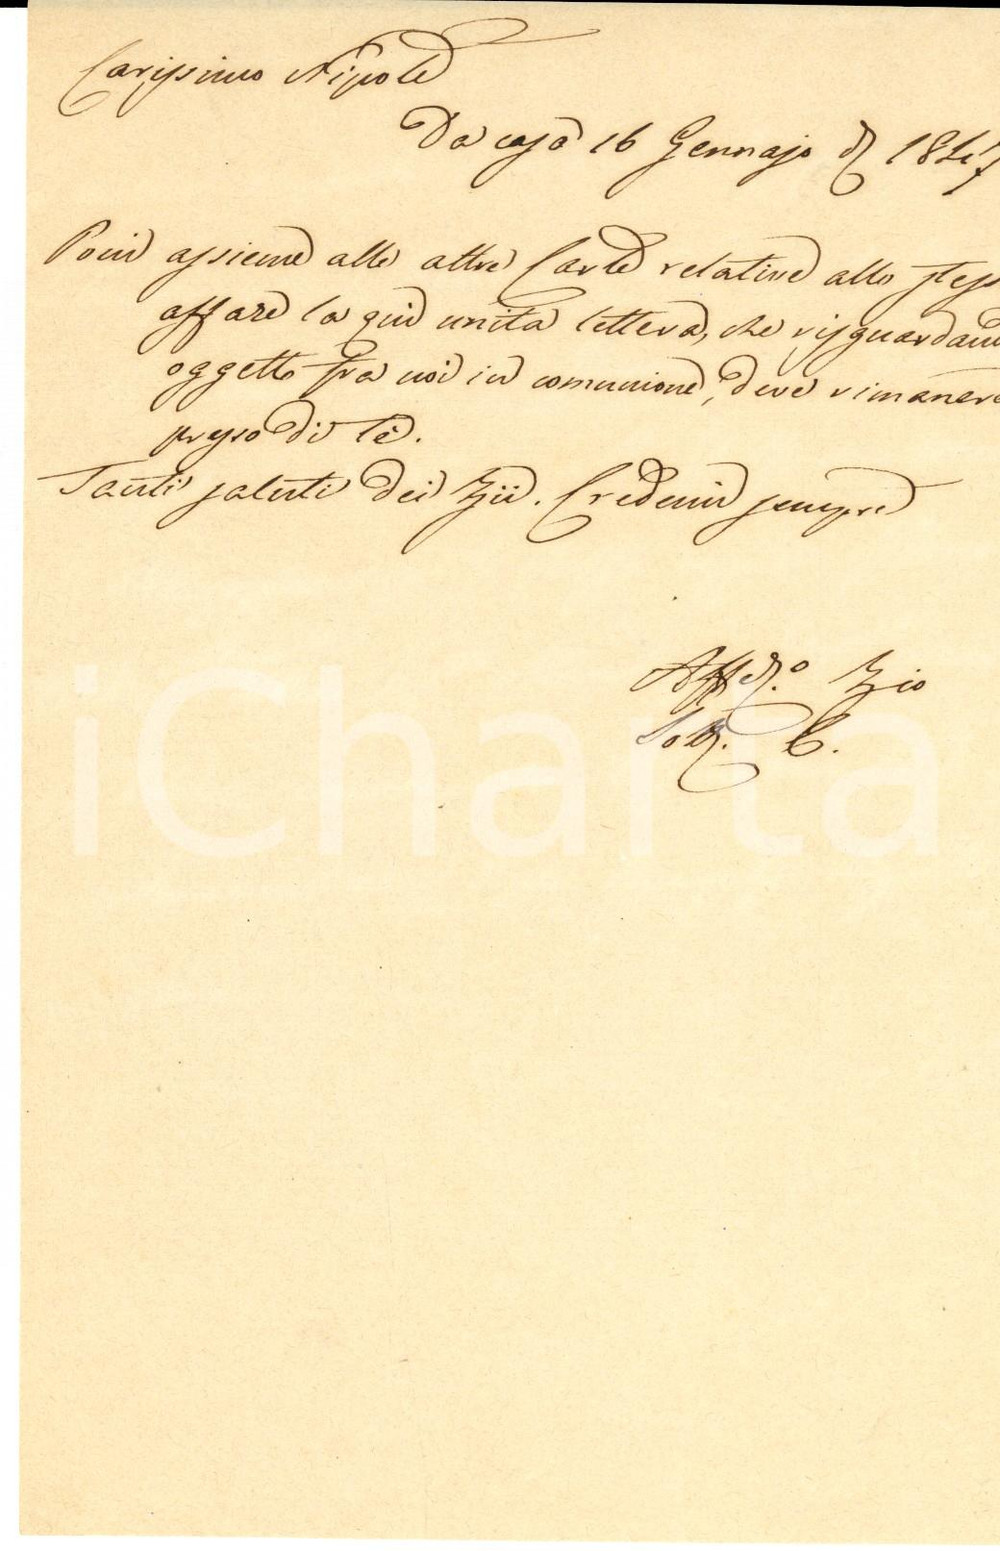 Carissimo Nipote
Da casa 16 Gennajo 1847
Poni assieme alle altre Carte relative allo stess
affare la qui unita lettera, che risguardan
oggetto fra noi in comunione, deve rimanere
presso di te.
Tanti saluti dei Zii. Credemi sempre
Affez.o Zio
C.
iCharta